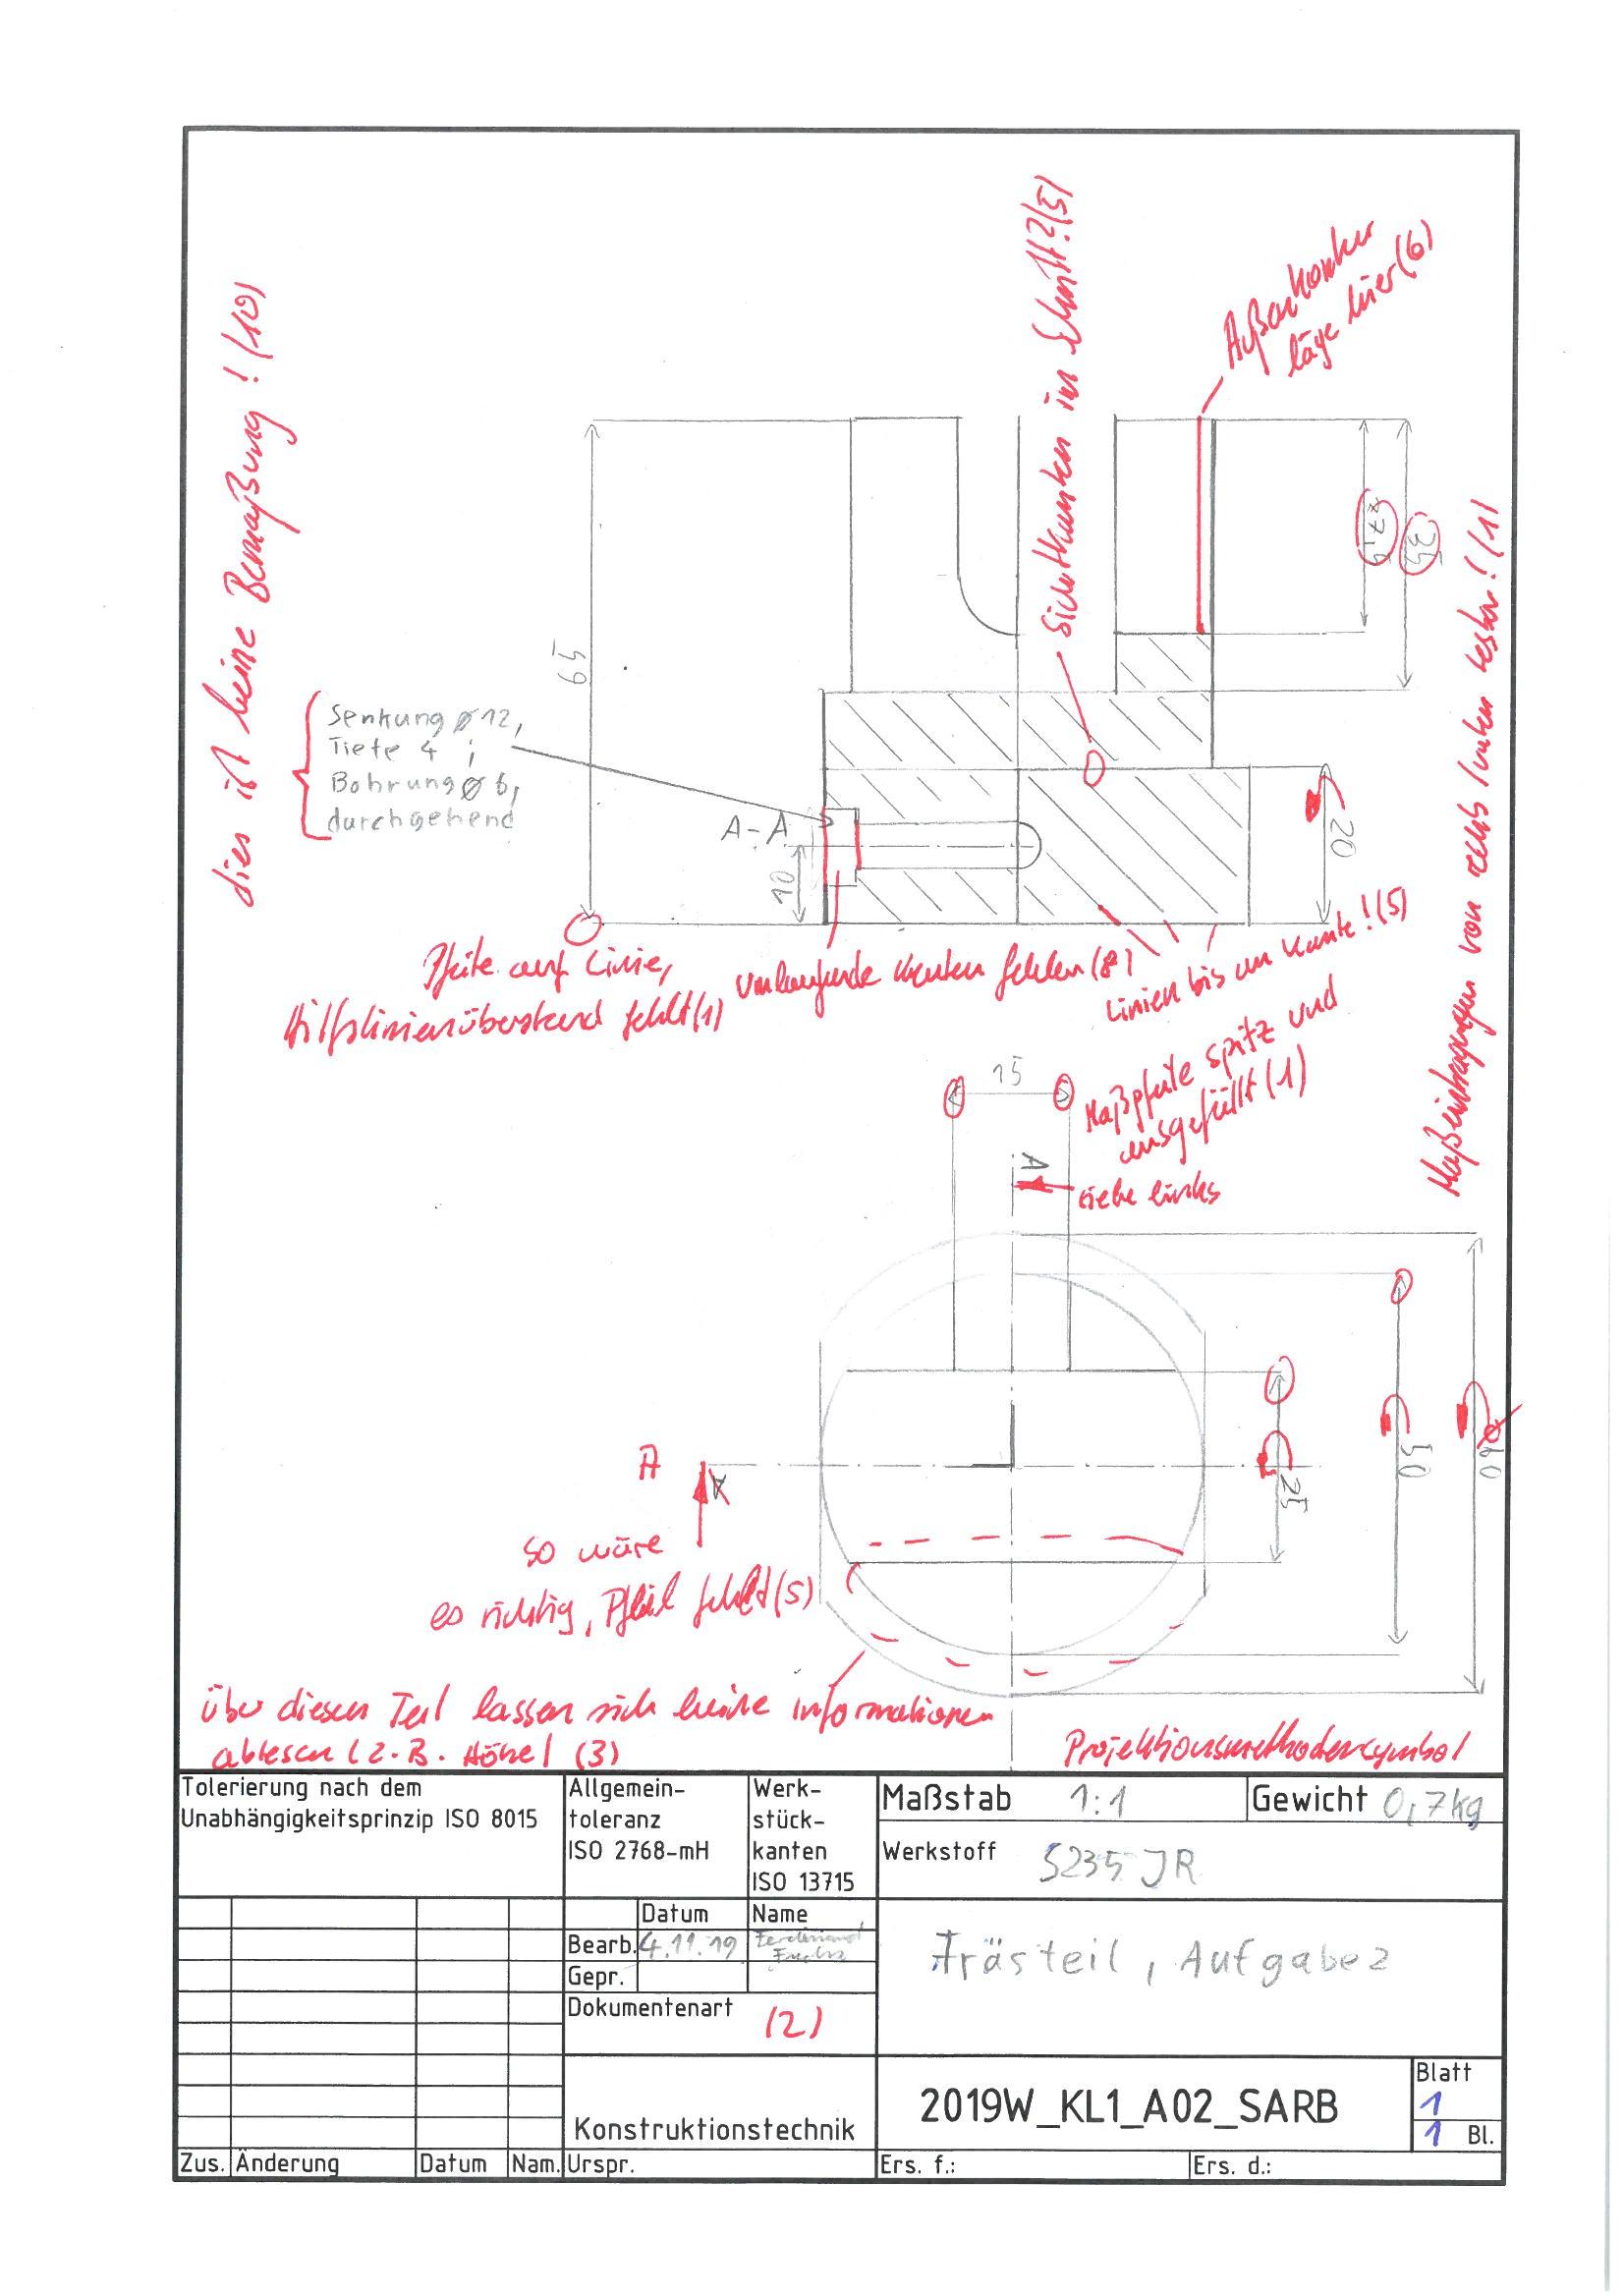 dies ist keine Bemaßung! (10)
Sichtkanten im Schnitt? (5)
Außenkontur
läge hier (6)
27,9
35
Maßeintragungen von rechts lesbar! (1)
65
Senkung ⌀12,
Tiefe 4 ;
Bohrung ⌀ 6,
durchgehend
A-A
10
20
Pfeile auf Linie,
Hilfslinienüberstand fehlt (1)
umlaufende Kanten fehlen (8)
Linien bis an Kante! (5)
15
Maßpfeile spitz und
ausgefüllt (1)
A
siehe links
A
A
so wäre
es richtig, Pfeil fehlt (5)
25
50
⌀60
über diesen Teil lassen sich keine Informationen
ablesen (z.B. Höhe) (3)
Projektionsmethodensymbol
Tolerierung nach dem
Unabhängigkeitsprinzip ISO 8015
Allgemein-
toleranz
ISO 2768-mH
Werk-
stück-
kanten
ISO 13715
Maßstab 1:1
Gewicht 0,7kg
Werkstoff S235 JR
Datum Name
Bearb. 4.11.19 Ferdinand
Gepr.
Dokumentenart
(2)
Frästeil, Aufgabe 2
Konstruktionstechnik
2019W_KL1_A02_SARB
Blatt
1
1 Bl.
Zus. Änderung Datum Nam. Urspr. Ers. f.: Ers. d.: